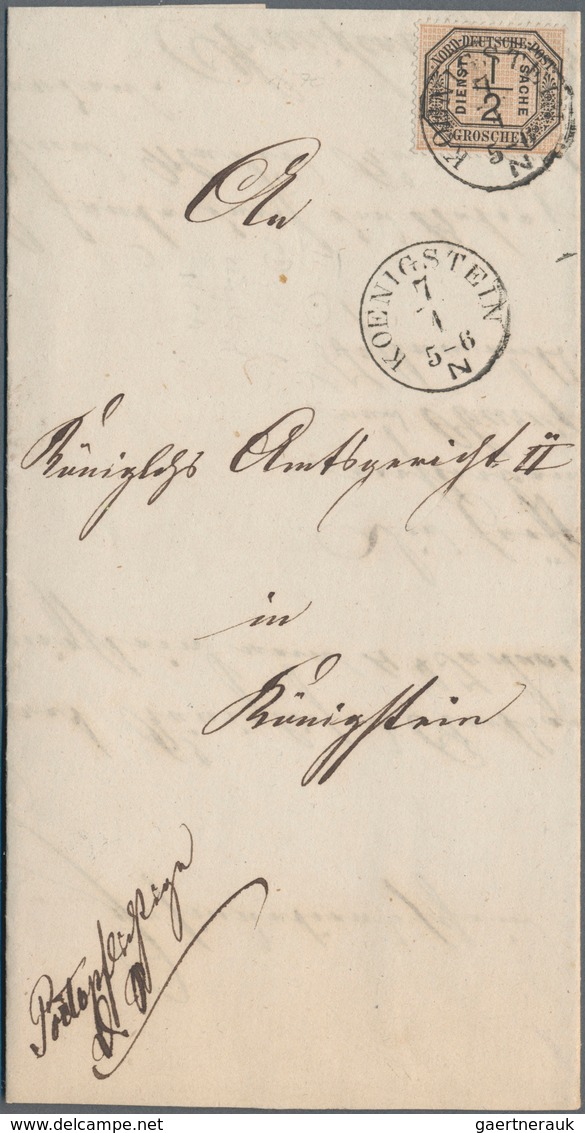 NORD-DEUTSCHE-POST
DIENST SACHE
1/2
GROSCHEN
An
KOENIGSTEIN
7
5-6
N
Königlchs Amtsgericht II
in
Königstein
Portopflichtige
D S
delcampe.net
gaertnerauk